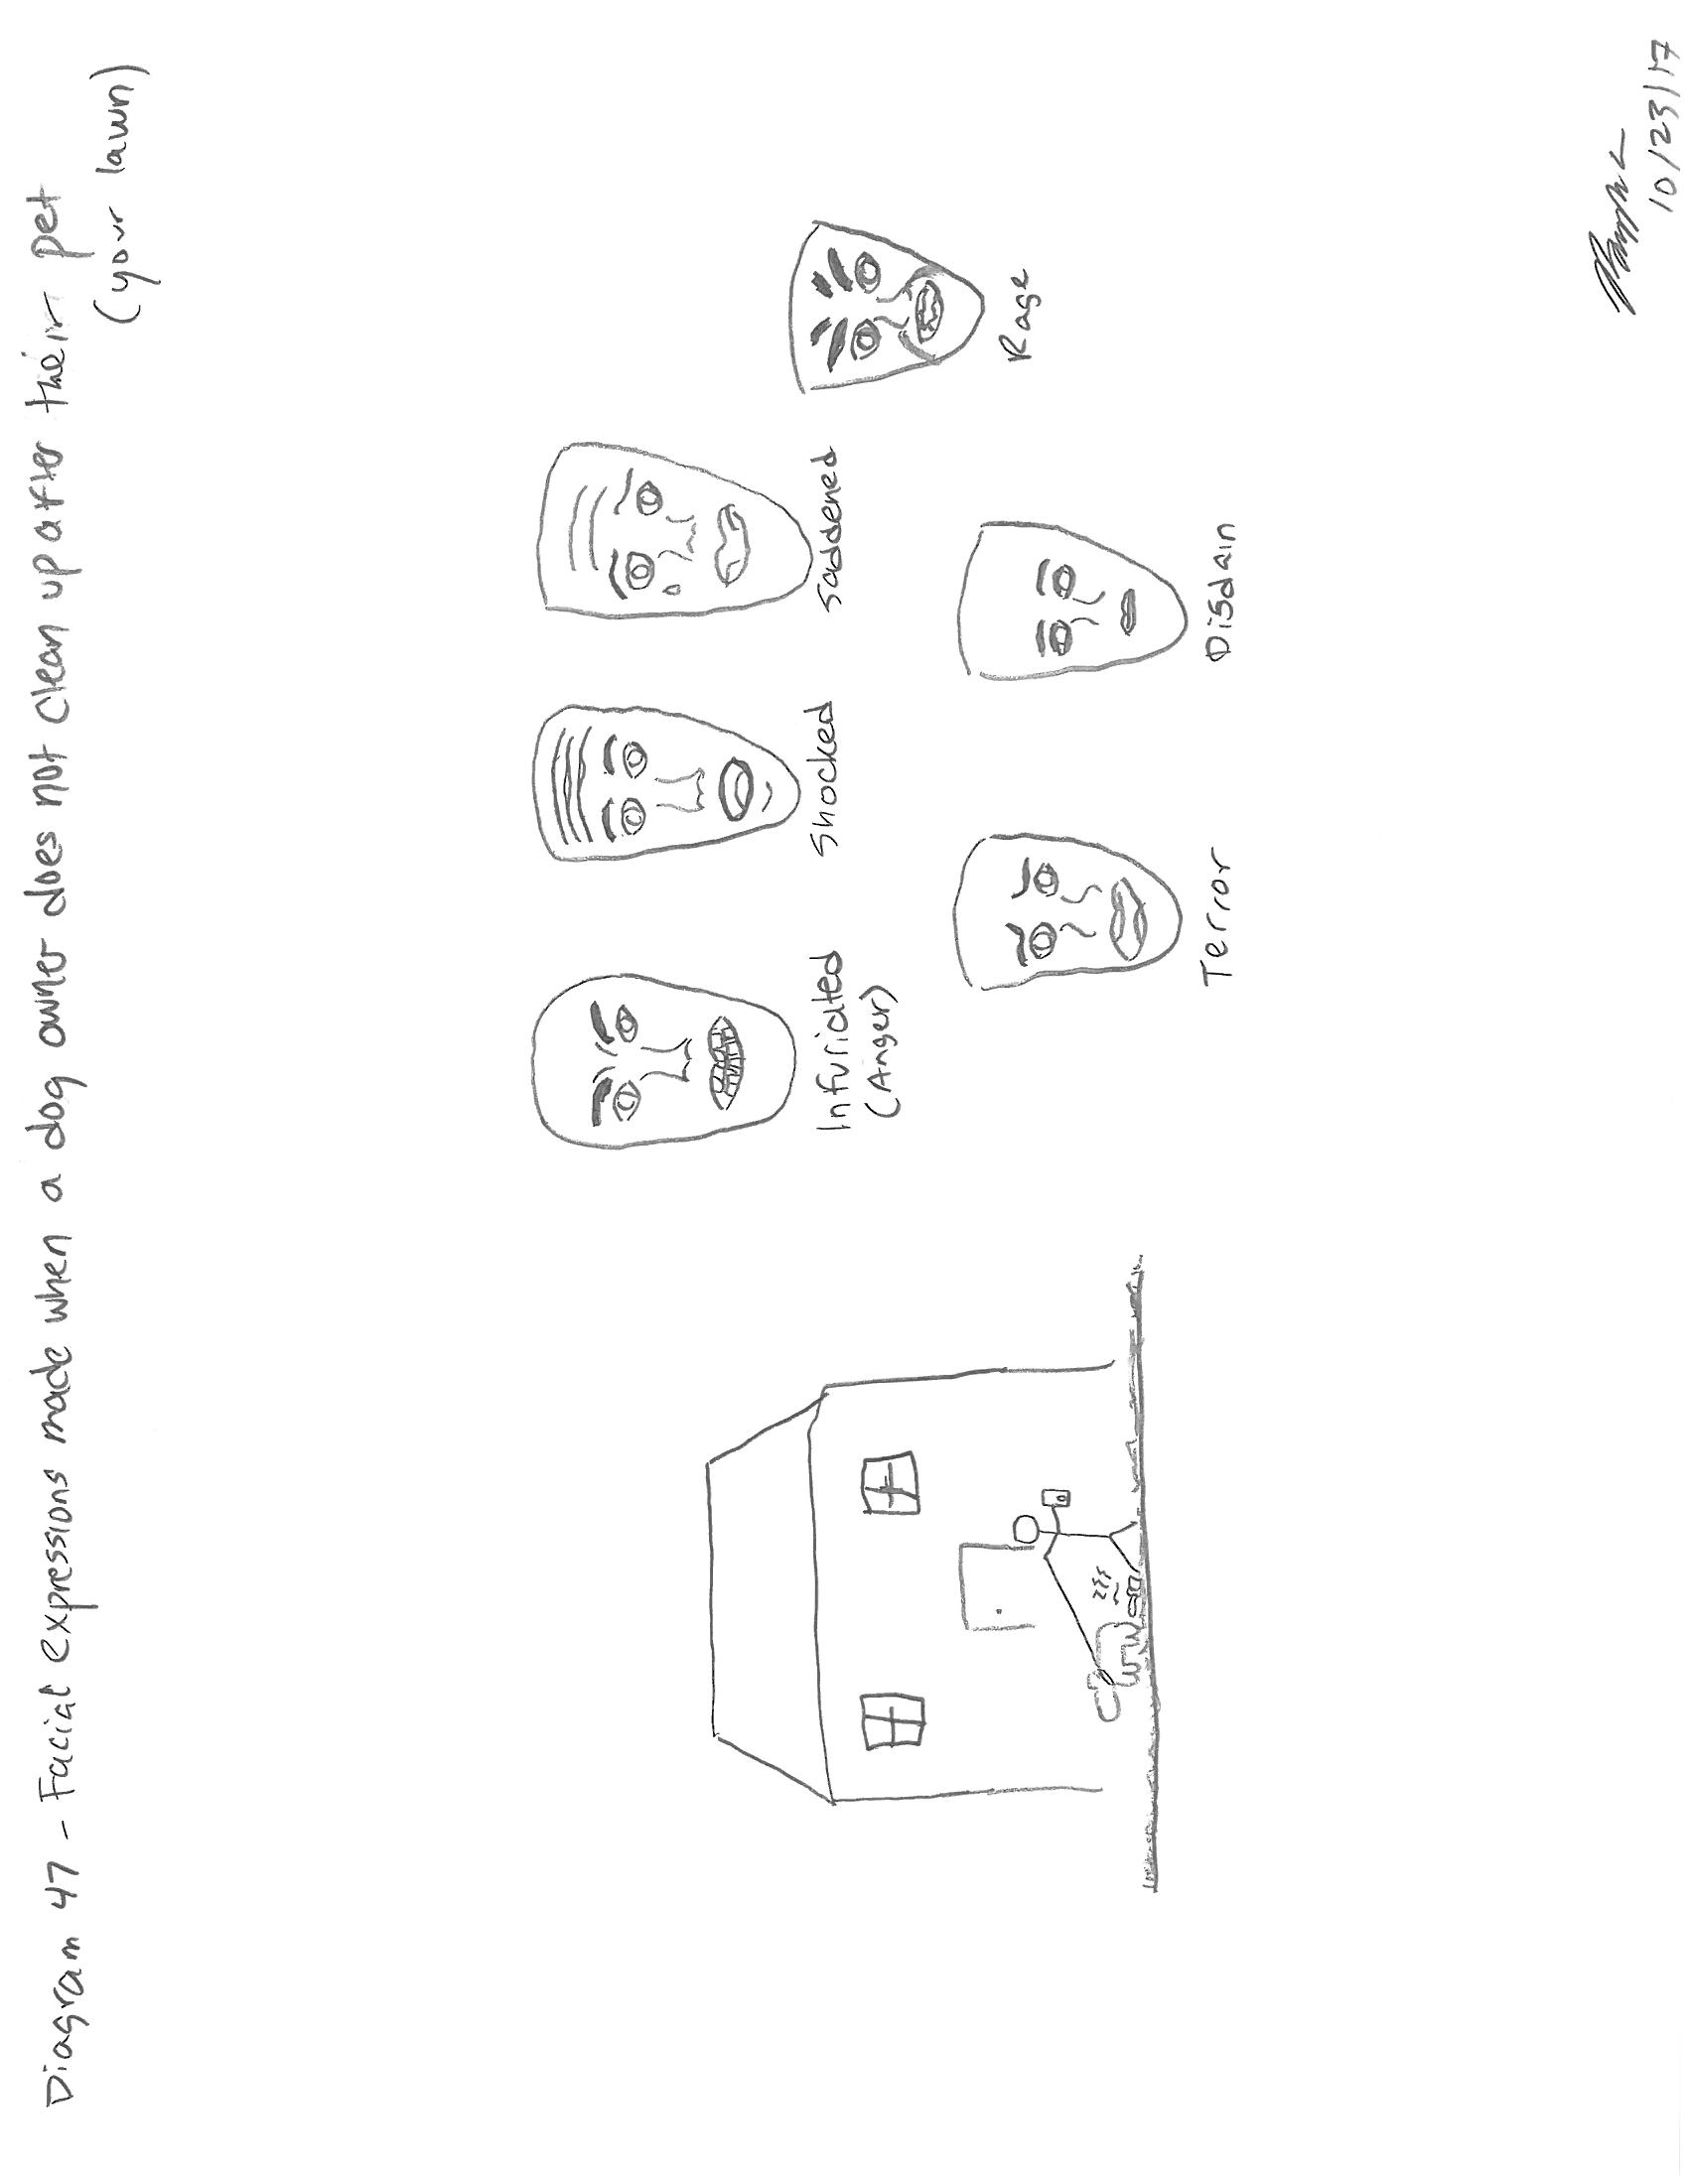 Diagram 47 - Facial expressions made when a dog owner does not clean up after their pet
(your lawn)
Infuriated
(Anger)
Shocked
Saddened
Rage
Terror
Disdain
10/23/17